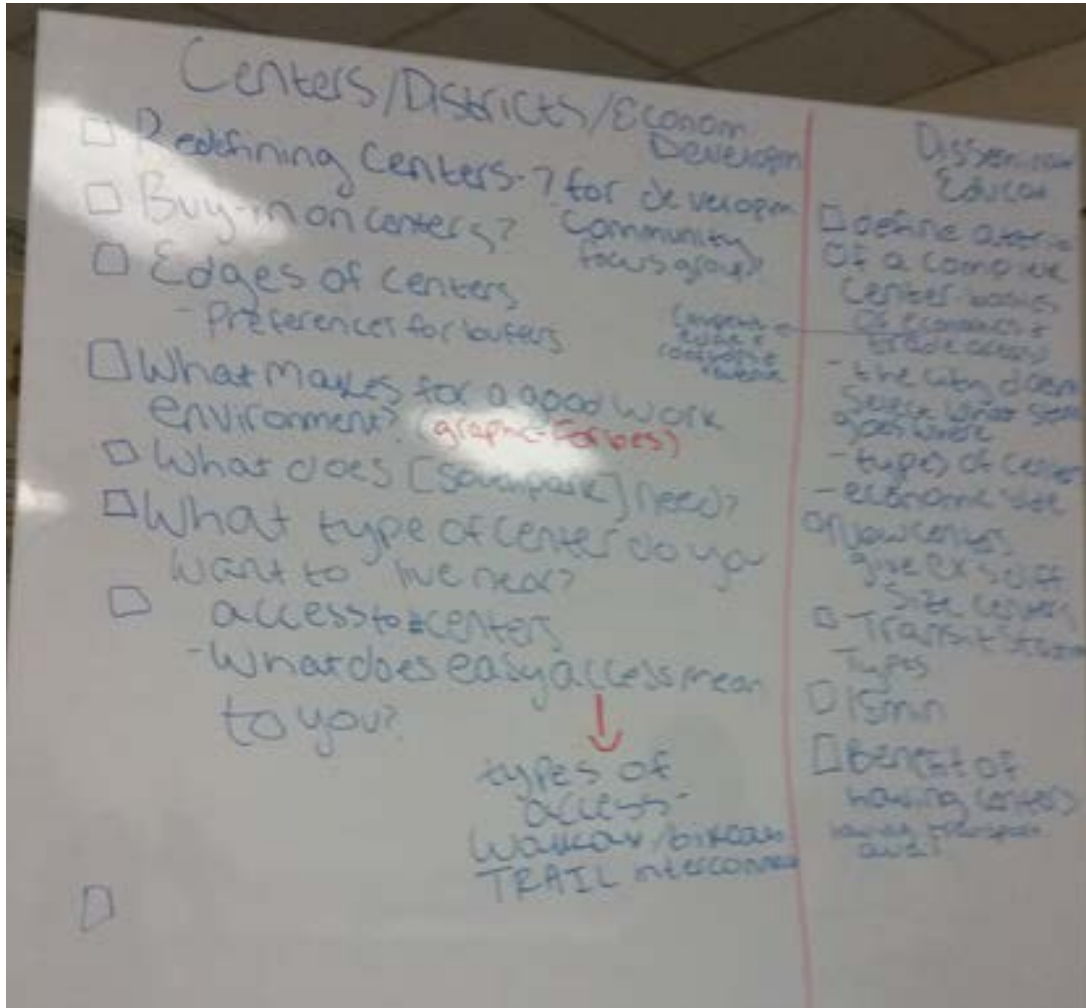 Centers/Districts/Econom
Developm
Redefining Centers-? for developm
Buy-in on centers? Community
focus group?
Edges of Centers
- Preferences for buffers
What makes for a good work
environment? (graphic-Forbes)
What does [southpark] need?
What type of center do you
want to live near?
access to centers
- What does easy access mean
to you?
types of
access-
TRAIL interconnec
Educat
define
Of a complete
Center
Of economics +
trade areas
- the city doesn
select what
goes where
- types of center
- economic
give ex's diff
size centers
Transit
Types
15min
Benefit of
having centers